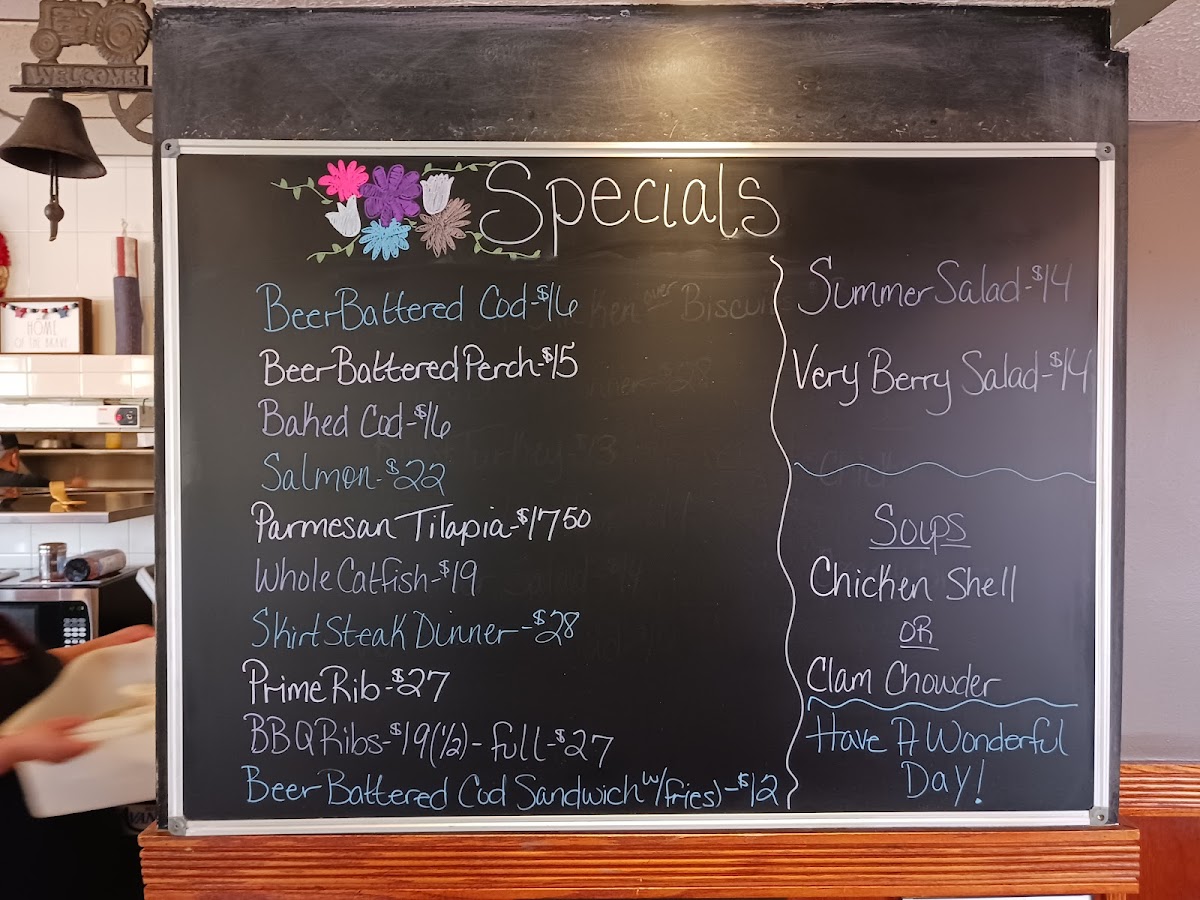 WELCOME
HOME
OF THE BRAVE
Specials
Beer Battered Cod-$16
Beer Battered Perch-$15
Baked Cod-$16
Salmon-$22
Parmesan Tilapia-$1750
Whole Catfish-$19
Skirt Steak Dinner-$28
Prime Rib-$27
BBQ Ribs-$19(1/2)-full-$27
Beer Battered Cod Sandwich w/fries)-$12
Summer Salad-$14
Very Berry Salad-$14
Soups
Chicken Shell
OR
Clam Chowder
Have A Wonderful
Day!